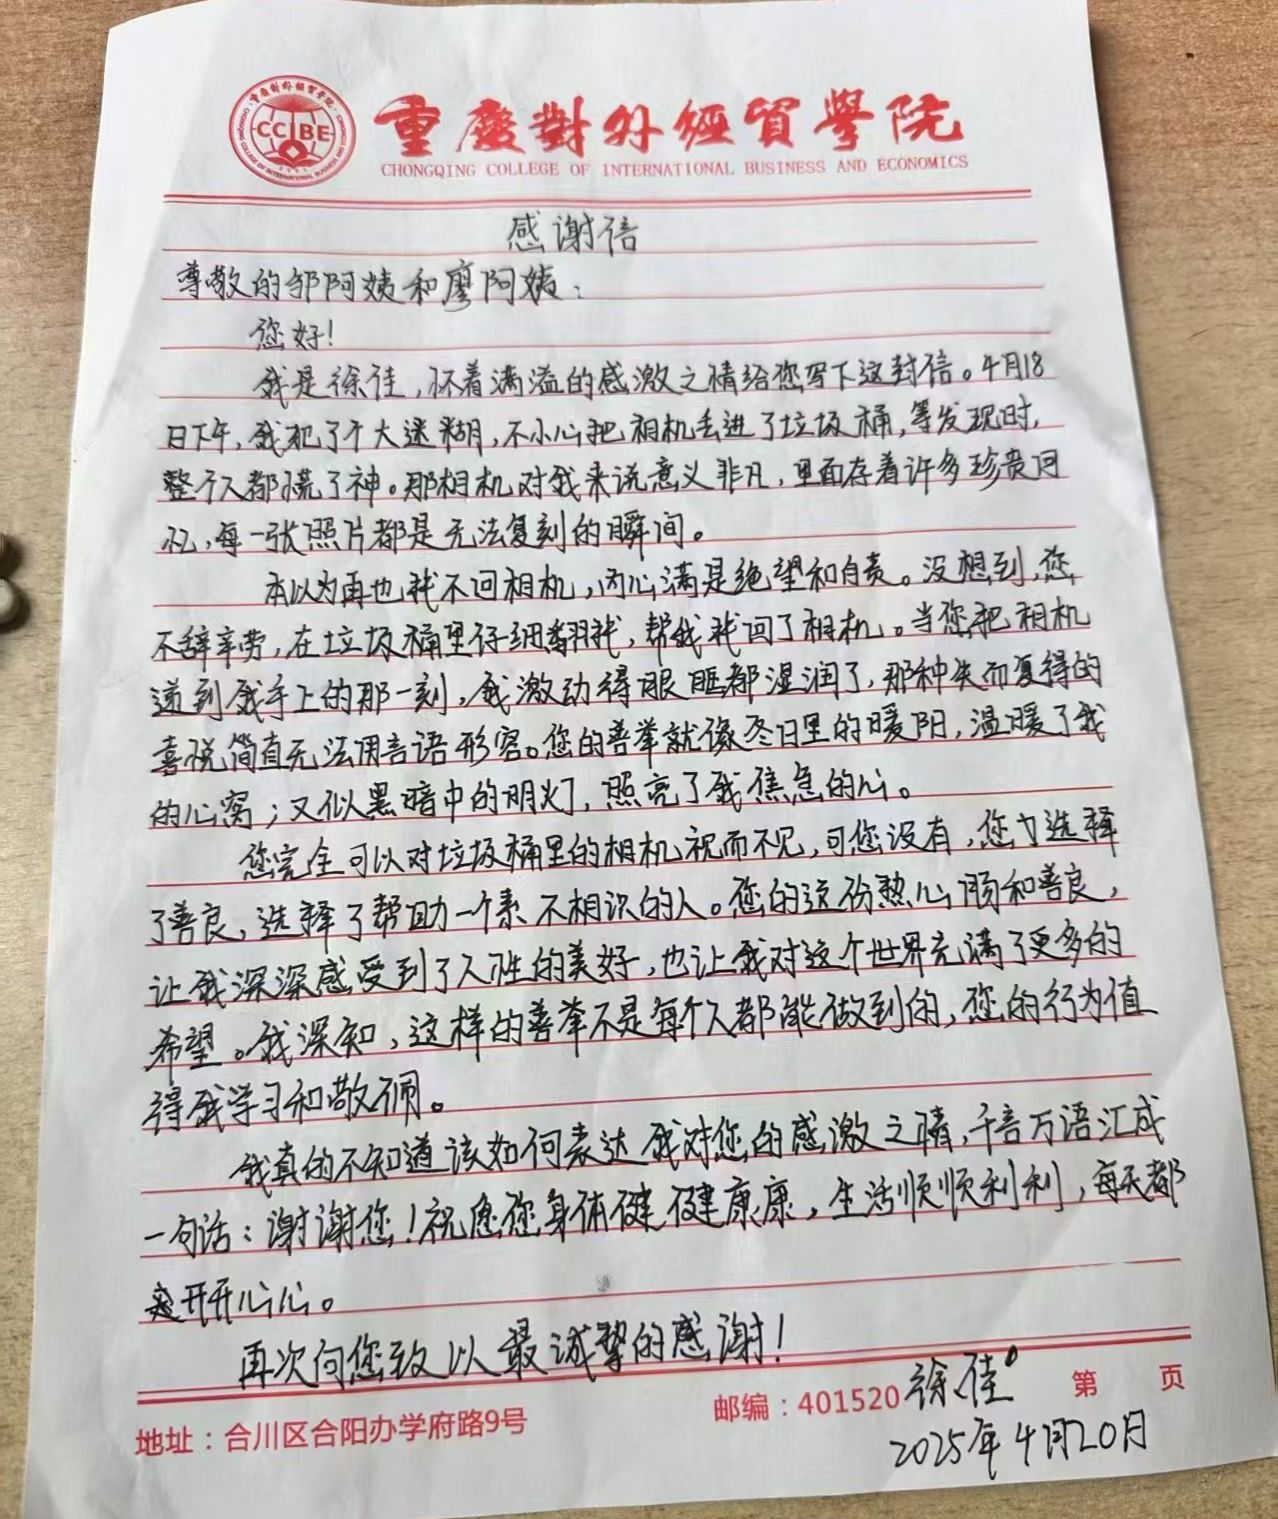 重慶對外經貿學院
CHONGQING COLLEGE OF INTERNATIONAL BUSINESS AND ECONOMICS
CCIBE
感谢信
尊敬的邹阿姨和廖阿姨：
您好！
我是徐佳，怀着满溢的感激之情给您写下这封信。4月18
日下午，我犯了个大迷糊，不小心把相机丢进了垃圾桶，等发现时，
整个人都慌了神。那相机对我来说意义非凡，里面存着许多珍贵回
忆，每一张照片都是无法复刻的瞬间。
本以为再也找不回相机，内心满是绝望和自责。没想到，您
不辞辛劳，在垃圾桶里仔细翻找，帮我找回了相机。当您把相机
递到我手上的那一刻，我激动得眼眶都湿润了，那种失而复得的
喜悦简直无法用言语形容。您的善举就像冬日里的暖阳，温暖了我
的心窝；又似黑暗中的明灯，照亮了我焦急的心。
您完全可以对垃圾桶里的相机视而不见，可您没有，您选择
了善良，选择了帮助一个素不相识的人。您的这份热心肠和善良，
让我深深感受到了人性的美好，也让我对这个世界充满了更多的
希望。我深知，这样的善举不是每个人都能做到的，您的行为值
得我学习和敬佩。
我真的不知道该如何表达我对您的感激之情，千言万语汇成
一句话：谢谢您！祝愿您身体健健康康，生活顺顺利利，每天都
开开心心。
再次向您致以最诚挚的感谢！
徐佳
2025年4月20日
地址：合川区合阳办学府路9号 邮编：401520 第 页